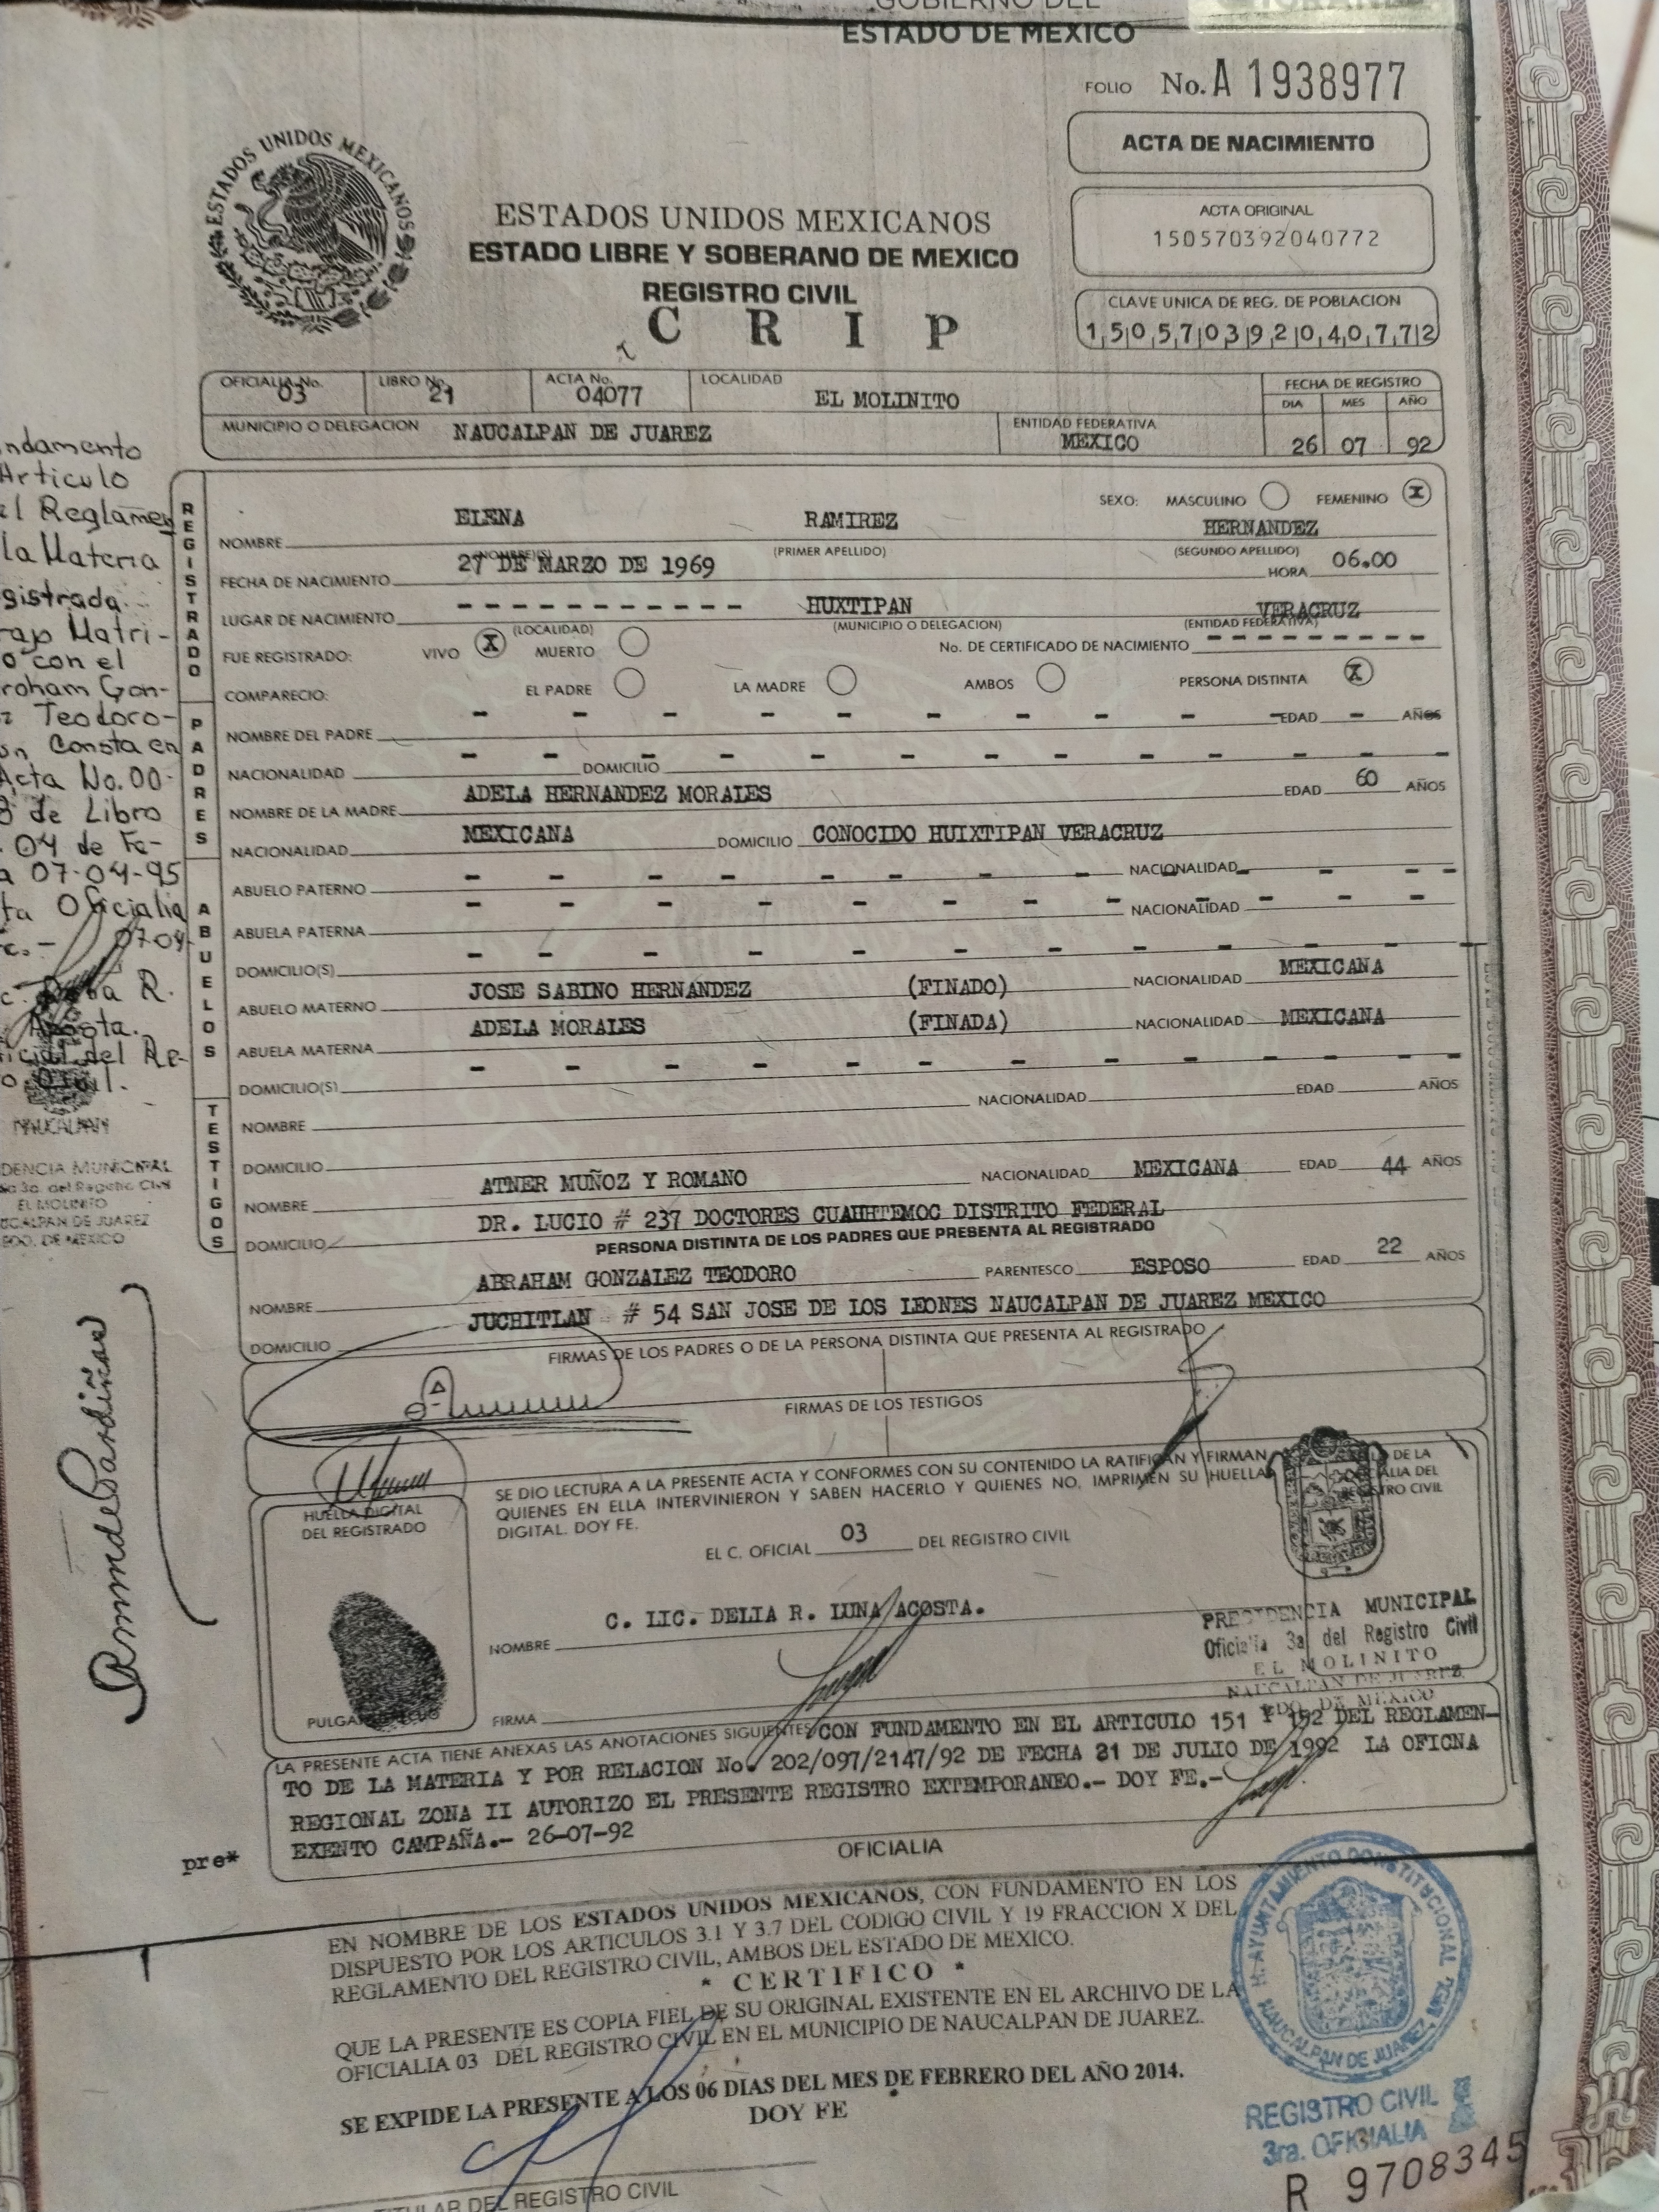 GOBIERNO DEL
ESTADO DE MEXICO
FOLIO No. A 1938977
ACTA DE NACIMIENTO
ESTADOS UNIDOS MEXICANOS
ACTA ORIGINAL
150570392040772
ESTADOS UNIDOS MEXICANOS
ESTADO LIBRE Y SOBERANO DE MEXICO
REGISTRO CIVIL
C R I P
CLAVE UNICA DE REG. DE POBLACION
150570392040772
OFICIALIA No. 03 LIBRO No. 21 ACTA No. 04077 LOCALIDAD EL MOLINITO
FECHA DE REGISTRO
DIA MES AÑO
MUNICIPIO O DELEGACION NAUCALPAN DE JUAREZ ENTIDAD FEDERATIVA MEXICO 26 07 92
REGISTRADO
SEXO: MASCULINO FEMENINO X
NOMBRE ELENA RAMIREZ HERNANDEZ
NOMBRE(S) (PRIMER APELLIDO) (SEGUNDO APELLIDO)
FECHA DE NACIMIENTO 27 DE MARZO DE 1969 HORA 06.00
LUGAR DE NACIMIENTO - - - - - - - - - - - - - HUXTIPAN VERACRUZ
(LOCALIDAD) (MUNICIPIO O DELEGACION) (ENTIDAD FEDERATIVA)
FUE REGISTRADO: VIVO X MUERTO No. DE CERTIFICADO DE NACIMIENTO - - - - - - - - - -
COMPARECIO: EL PADRE LA MADRE AMBOS PERSONA DISTINTA X
PADRES
NOMBRE DEL PADRE - - - - - - - - - - EDAD - AÑOS
NACIONALIDAD - - DOMICILIO - - - - - - - - -
NOMBRE DE LA MADRE ADELA HERNANDEZ MORALES EDAD 60 AÑOS
NACIONALIDAD MEXICANA DOMICILIO CONOCIDO HUIXTIPAN VERACRUZ
ABUELOS
ABUELO PATERNO - - - - - - - - NACIONALIDAD - - -
ABUELA PATERNA - - - - - - - - NACIONALIDAD - - -
DOMICILIO(S) - - - - - - - - - - - -
ABUELO MATERNO JOSE SABINO HERNANDEZ (FINADO) NACIONALIDAD MEXICANA
ABUELA MATERNA ADELA MORALES (FINADA) NACIONALIDAD MEXICANA
DOMICILIO(S) - - - - - - - - - - - -
TESTIGOS
NOMBRE NACIONALIDAD EDAD AÑOS
DOMICILIO
NOMBRE ATNER MUÑOZ Y ROMANO NACIONALIDAD MEXICANA EDAD 44 AÑOS
DOMICILIO DR. LUCIO # 237 DOCTORES CUAUHTEMOC DISTRITO FEDERAL
PERSONA DISTINTA DE LOS PADRES QUE PRESENTA AL REGISTRADO
NOMBRE ABRAHAM GONZALEZ TEODORO PARENTESCO ESPOSO EDAD 22 AÑOS
DOMICILIO JUCHITLAN # 54 SAN JOSE DE LOS LEONES NAUCALPAN DE JUAREZ MEXICO
FIRMAS DE LOS PADRES O DE LA PERSONA DISTINTA QUE PRESENTA AL REGISTRADO
FIRMAS DE LOS TESTIGOS
SE DIO LECTURA A LA PRESENTE ACTA Y CONFORMES CON SU CONTENIDO LA RATIFICAN Y FIRMAN
QUIENES EN ELLA INTERVINIERON Y SABEN HACERLO Y QUIENES NO, IMPRIMEN SU HUELLA
DIGITAL. DOY FE.
DE LA
REGISTRO CIVIL
HUELLA DIGITAL
DEL REGISTRADO
EL C. OFICIAL 03 DEL REGISTRO CIVIL
NOMBRE C. LIC. DELIA R. LUNA ACOSTA.
PULGAR
FIRMA
PRESIDENCIA MUNICIPAL
Oficialia 3a del Registro Civil
EL MOLINITO
NAUCALPAN DE JUAREZ
EDO. DE MEXICO
LA PRESENTE ACTA TIENE ANEXAS LAS ANOTACIONES SIGUIENTES CON FUNDAMENTO EN EL ARTICULO 151 Y 152 DEL REGLAMEN-
TO DE LA MATERIA Y POR RELACION No. 202/097/2147/92 DE FECHA 21 DE JULIO DE 1992 LA OFICNA
REGIONAL ZONA II AUTORIZO EL PRESENTE REGISTRO EXTEMPORANEO.- DOY FE.-
EXENTO CAMPAÑA.- 26-07-92
pre*
OFICIALIA
EN NOMBRE DE LOS ESTADOS UNIDOS MEXICANOS, CON FUNDAMENTO EN LOS
DISPUESTO POR LOS ARTICULOS 3.1 Y 3.7 DEL CODIGO CIVIL Y 19 FRACCION X DEL
REGLAMENTO DEL REGISTRO CIVIL, AMBOS DEL ESTADO DE MEXICO.
* CERTIFICO *
QUE LA PRESENTE ES COPIA FIEL DE SU ORIGINAL EXISTENTE EN EL ARCHIVO DE LA
OFICIALIA 03 DEL REGISTRO CIVIL EN EL MUNICIPIO DE NAUCALPAN DE JUAREZ.
SE EXPIDE LA PRESENTE A LOS 06 DIAS DEL MES DE FEBRERO DEL AÑO 2014.
DOY FE
TITULAR DEL REGISTRO CIVIL
H. AYUNTAMIENTO CONSTITUCIONAL
NAUCALPAN DE JUAREZ, MEX.
REGISTRO CIVIL
3ra. OFICIALIA
R 9708345
ndamento
Articulo
el Reglamen
la Materia
gistrada
rajo Matri-
o con el
roham Gon-
z Teodoro-
un Consta en
Acta No. 00-
8 de Libro
. 04 de Fe-
a 07-04-95
ta Oficialia
c.- 07-04-
R.
Acosta.
icial del Re-
o Civil.
NAUCALPAN
DENCIA MUNICIPAL
3a. del Registro Civil
EL MOLINITO
UCALPAN DE JUAREZ
EDO. DE MEXICO